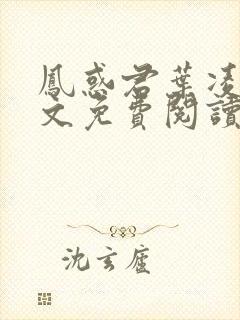 鳳惑君葉凌
文免費閱讀
沈玄廬